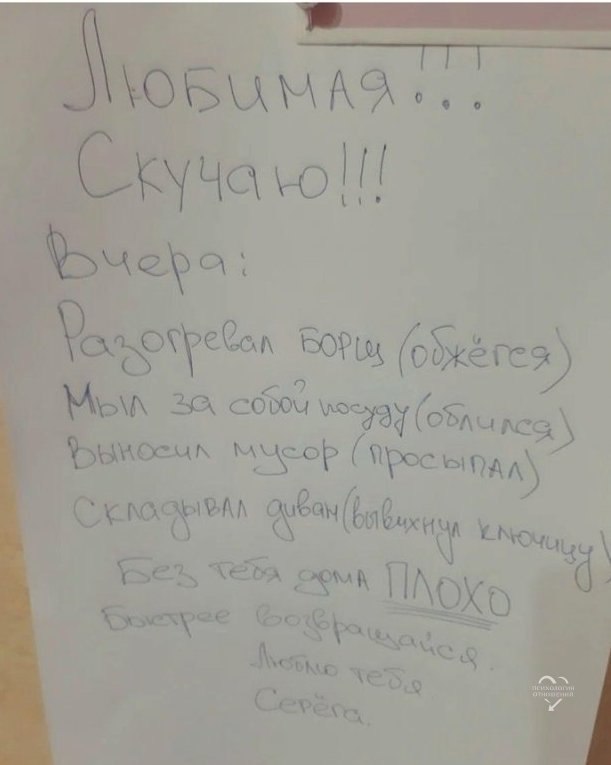 Любимая!!!
Скучаю!!!
Вчера:
Разогревал борщ (обжёгся)
Мыл за собой посуду (облился)
Выносил мусор (просыпал)
Складывал диван (вывихнул ключицу)
Без тебя дома ПЛОХО
Быстрее возвращайся.
Люблю тебя
Серёга.
ПСИХОЛОГИЯ
ОТНОШЕНИЙ